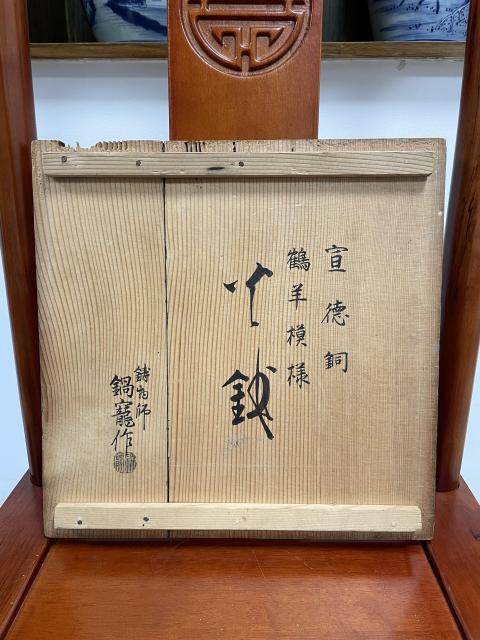 宣德銅
鶴羊模様
火鉢
鋳物師
鍋寵作